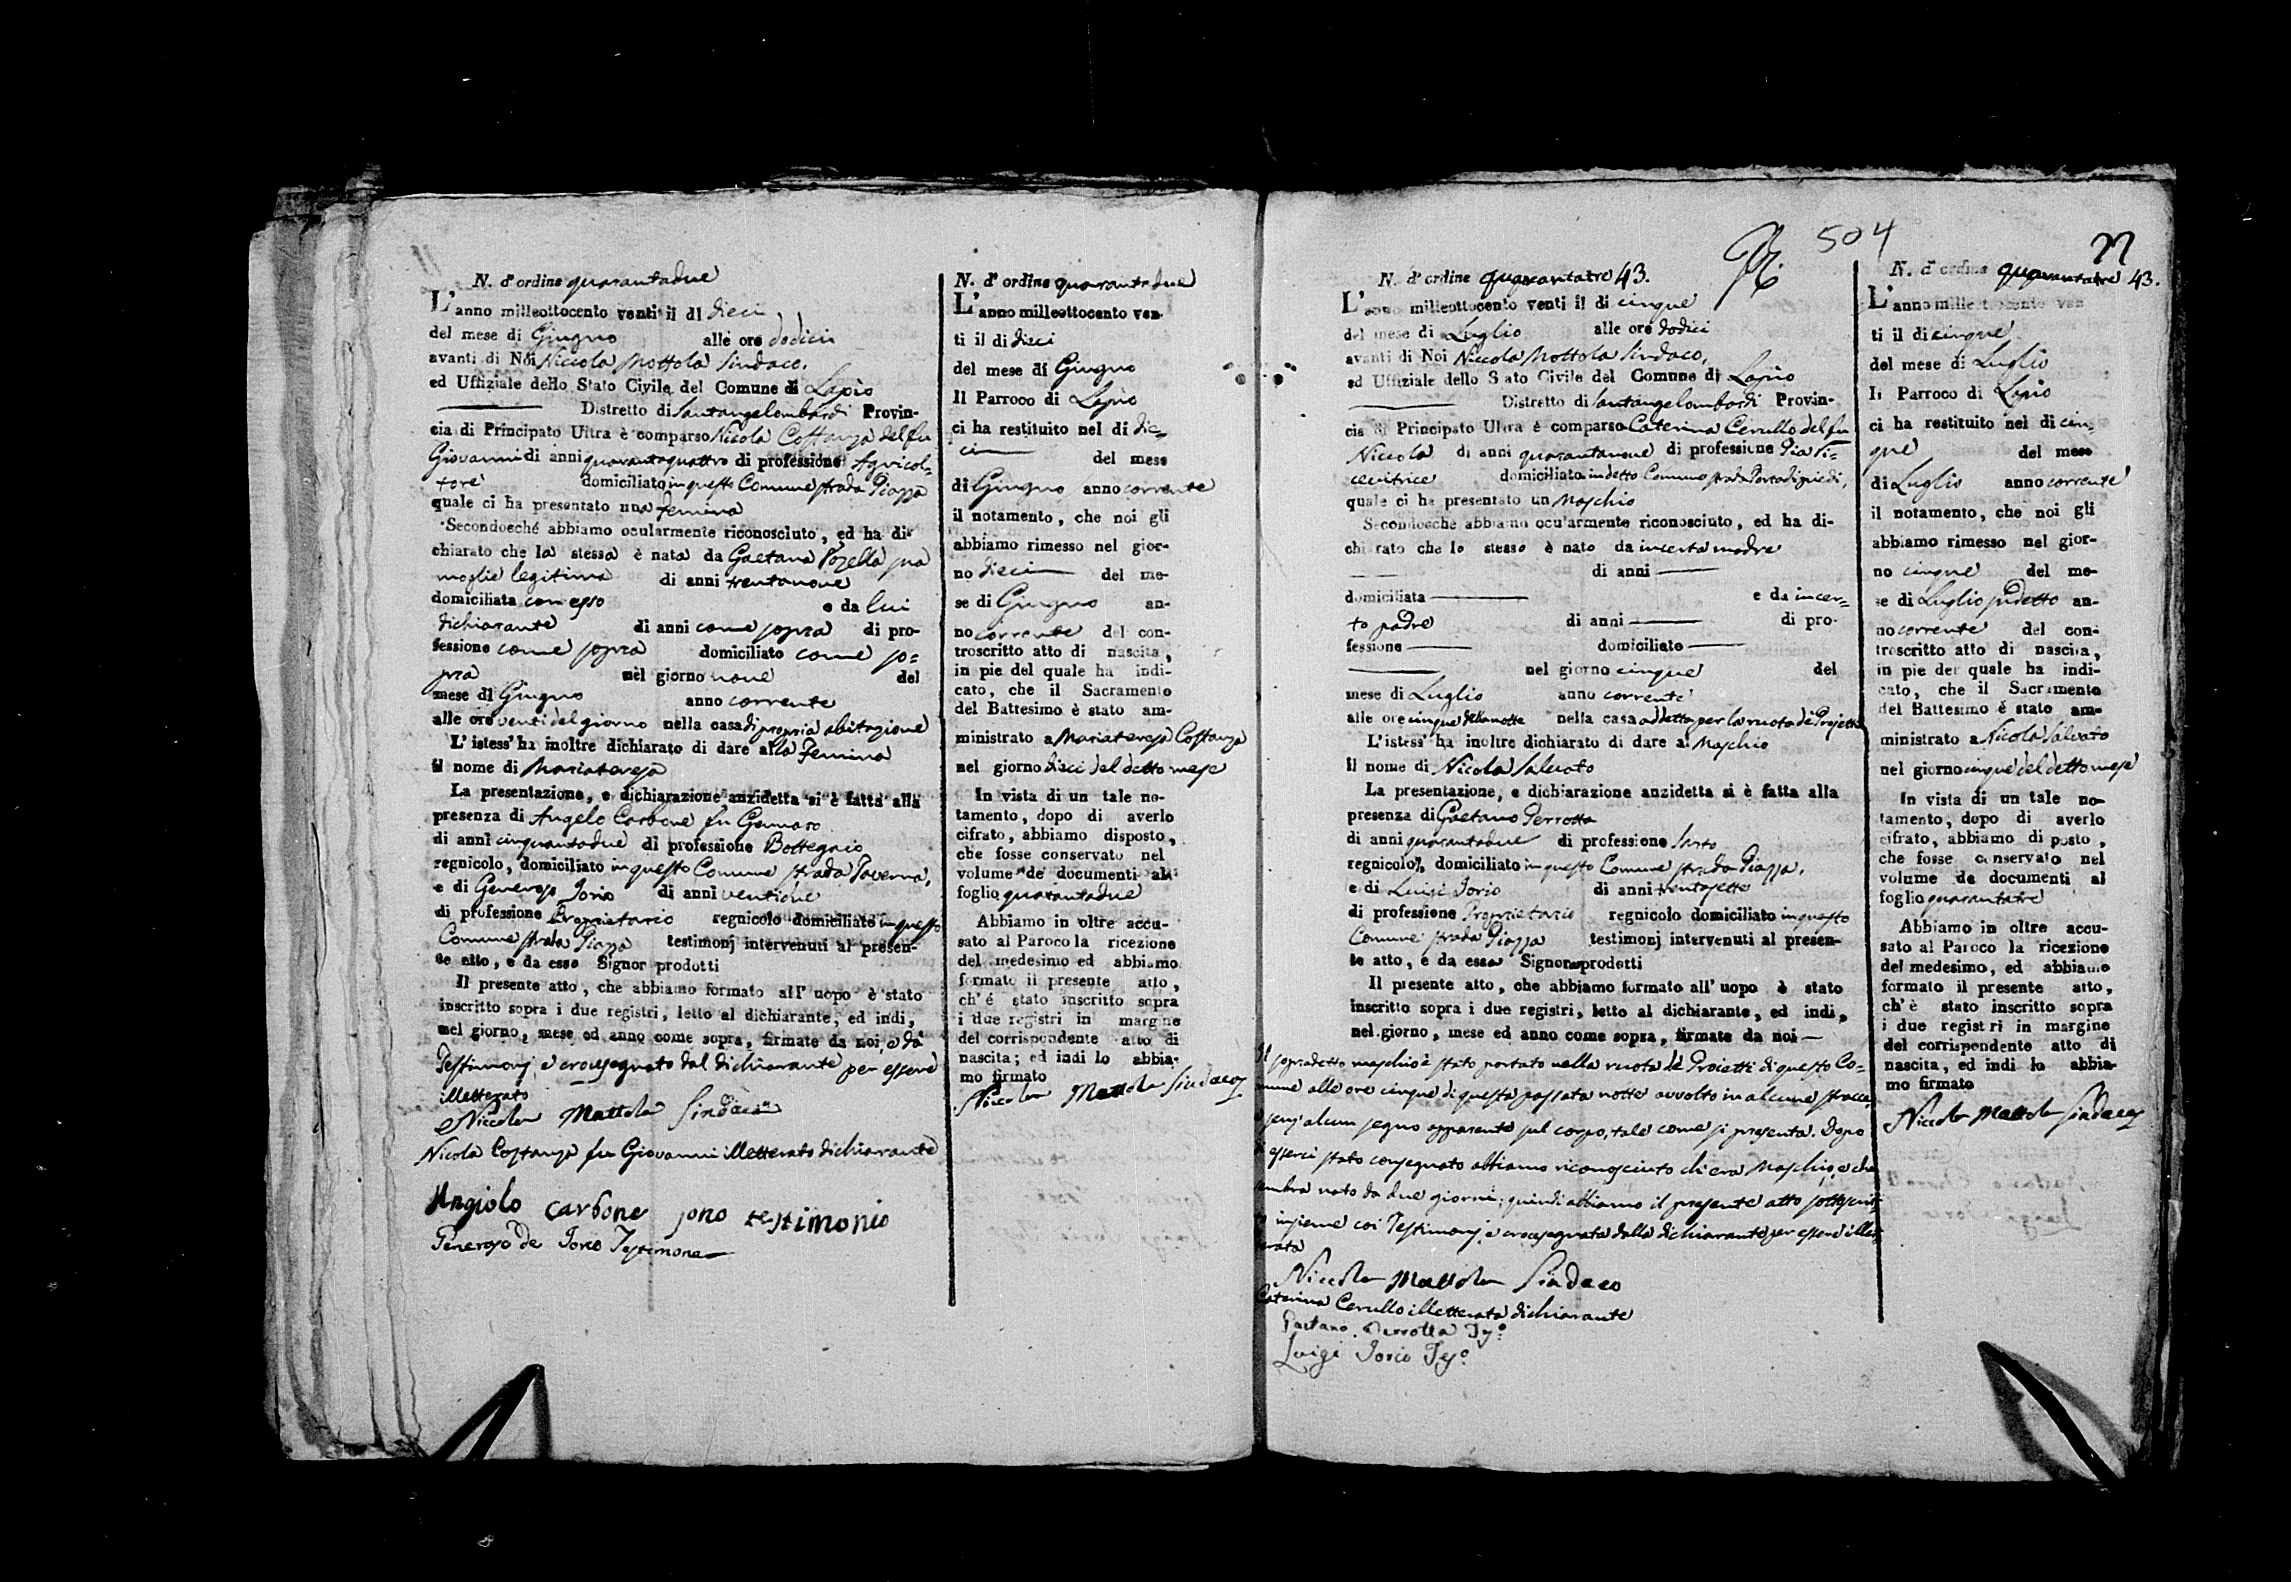 N. d'ordine quarantadue
L'anno milleottocento venti il di dieci
del mese di Giugno alle ore dodici
avanti di Noi Niccola Mottola Sindaco,
ed Uffiziale dello Stato Civile del Comune di Lapio
Distretto di Santangelombardi Provin-
cia di Principato Ultra è comparso Nicola Costanza del fu
Giovanni di anni quarantaquattro di professione Agricol-
tore domiciliato in questo Comune strada Piazza
quale ci ha presentato una femina
Secondoché abbiamo ocularmente riconosciuto, ed ha di-
chiarato che la stessa è nata da Gaetana sua
moglie legitima di anni trentanove
domiciliata con esso e da lui
dichiarante di anni come sopra di pro-
fessione come sopra domiciliato come so-
pra nel giorno nove del
mese di Giugno anno corrente
alle ore venti del giorno nella casa di propria abitazione
L'istess' ha inoltre dichiarato di dare alla Femina
il nome di Mariateresa
La presentazione, e dichiarazione anzidetta si è fatta alla
presenza di Angelo Carbone fu Gennaro
di anni cinquantadue di professione Bottegaio
regnicolo, domiciliato in questo Comune strada Taverna,
e di Generoso Iorio di anni ventidue
di professione Proprietario regnicolo domiciliato in questo
Comune strada Piazza testimonj intervenuti al presen-
te atto, e da esso Signor prodotti
Il presente atto, che abbiamo formato all' uopo è stato
inscritto sopra i due registri, letto al dichiarante, ed indi,
nel giorno, mese ed anno come sopra, firmato da noi, e da
Testimonj, e crocesegnato dal dichiarante per essere
illetterato
Niccola Mottola Sindaco
Nicola Costanza fu Giovanni illetterato dichiarante
Angiolo Carbone sono testimonio
Generoso de Iorio Testimone
N. d'ordine quarantadue
L'anno milleottocento ven-
ti il di dieci
del mese di Giugno
Il Parroco di Lapio
ci ha restituito nel dì die-
ci del mese
di Giugno anno corrente
il notamento, che noi gli
abbiamo rimesso nel gior-
no dieci del me-
se di Giugno an-
no corrente del con-
troscritto atto di nascita,
in pie del quale ha indi-
cato, che il Sacramento
del Battesimo è stato am-
ministrato a Mariateresa Costanza
nel giorno dieci del detto mese
In vista di un tale no-
tamento, dopo di averlo
cifrato, abbiamo disposto,
che fosse conservato nel
volume de' documenti al
foglio quarantadue
Abbiamo in oltre accu-
sato al Paroco la ricezione
del medesimo ed abbiamo
formato il presente atto,
ch'é stato inscritto sopra
i due registri in margine
del corrispondente atto di
nascita; ed indi lo abbia-
mo firmato
Niccola Mottola Sindaco
504
N. d'ordine quarantatre 43.
L'anno milleottocento venti il di cinque
del mese di Luglio alle ore dodici
avanti di Noi Niccola Mottola Sindaco,
ed Uffiziale dello Stato Civile del Comune di Lapio
Distretto di Santangelombardi Provin-
cia di Principato Ultra é comparso Caterina Cerullo del fu
Niccola di anni quarantanove di professione Pia Ri-
cevitrice domiciliata in detto Comune strada Portadipiedi,
quale ci ha presentato un Maschio
Secondoche abbiamo ocularmente riconosciuto, ed ha di-
chiarato che lo stesso è nato da incerta madre
di anni
domiciliata e da incer-
to padre di anni di pro-
fessione domiciliato
nel giorno cinque del
mese di Luglio anno corrente
alle ore cinque della notte nella casa addetta per la ruota de' Projetti
L'istess' ha inoltre dichiarato di dare al Maschio
il nome di Nicola Salvato
La presentazione, e dichiarazione anzidetta si è fatta alla
presenza di Gaetano Perrotta
di anni quarantadue di professione Sarto
regnicolo, domiciliato in questo Comune strada Piazza,
e di Luigi Iorio di anni trentasette
di professione Proprietario regnicolo domiciliato in questo
Comune strada Piazza testimonj intervenuti al presen-
te atto, e da essa Signora prodotti
Il presente atto, che abbiamo formato all' uopo è stato
inscritto sopra i due registri, letto al dichiarante, ed indi,
nel giorno, mese ed anno come sopra, firmato da noi
Il sopradetto maschio è stato portato nella ruota de' Proietti di questo Co-
mune alle ore cinque di questa passata notte avvolto in alcune stracce,
senz'alcun segno apparente sul corpo, tale come si presenta. Dopo
esserci stato consegnato abbiamo riconosciuto ch'era Maschio, e che
sembra nato da due giorni; quindi abbiamo il presente atto sottoscrit-
to insieme coi Testimonj, e crocesegnata dalla dichiarante per essere illet-
terata
Niccola Mottola Sindaco
Caterina Cerullo illetterata dichiarante
Gaetano Perrotta Tes.o
Luigi Iorio Tes.o
N. d'ordine quarantatre 43.
L'anno milleottocento ven-
ti il di cinque
del mese di Luglio
Il Parroco di Lapio
ci ha restituito nel di cin-
que del mese
di Luglio anno corrente
il notamento, che noi gli
abbiamo rimesso nel gior-
no cinque del me-
se di Luglio sudetto an-
no corrente del con-
troscritto atto di nascita,
in pie del quale ha indi-
cato, che il Sacramento
del Battesimo é stato am-
ministrato a Nicola Salvato
nel giorno cinque del detto mese
In vista di un tale no-
tamento, dopo di averlo
cifrato, abbiamo disposto,
che fosse conservato nel
volume de documenti al
foglio quarantatre
Abbiamo in oltre accu-
sato al Paroco la ricezione
del medesimo, ed abbiamo
formato il presente atto,
ch'è stato inscritto sopra
i due registri in margine
del corrispondente atto di
nascita, ed indi lo abbia-
mo firmato
Niccola Mottola Sindaco